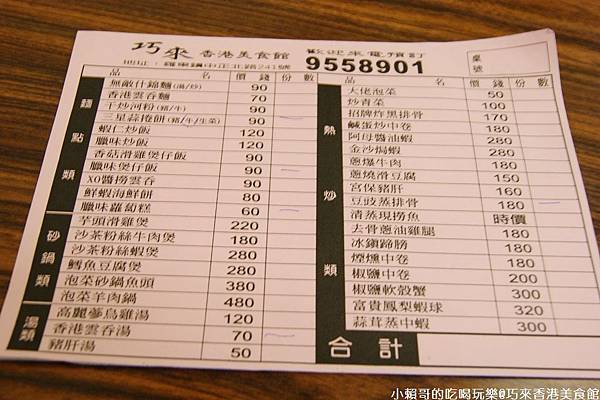 巧來 香港美食館 歡迎來電預訂
地址：羅東鎮中正北路241號 9558901
桌號
品名 價錢 份數
麵點類
無敵什錦麵(湯/炒) 90
香港雲吞麵 70
干炒河粉(豬/牛) 90
三星蒜捲餅(豬/牛/生菜) 90
蝦仁炒飯 120
臘味炒飯 120
香菇滑雞煲仔飯 90
臘味煲仔飯 90
XO醬撈雲吞 90
鮮蝦海鮮餅 80
臘味蘿蔔糕 60
砂鍋類
芋頭滑雞煲 220
沙茶粉絲牛肉煲 180
沙茶粉絲蝦煲 280
鱈魚豆腐煲 280
泡菜砂鍋魚頭 380
泡菜羊肉鍋 480
湯類
高麗蔘烏雞湯 120
香港雲吞湯 70
豬肝湯 50
品名 價錢 份數
熱炒類
大佬泡菜 50
炒青菜 100
招牌炸黑排骨 170
鹹蛋炒中卷 180
阿母醬油蝦 280
金沙焗蝦 280
蔥爆牛肉 180
蔥燒滑豆腐 150
宮保豬肝 160
豆豉蒸排骨 180
清蒸現撈魚 時價
去骨蔥油雞腿 180
冰鎮蹄膀 180
煙燻中卷 180
椒鹽中卷 200
椒鹽軟殼蟹 300
富貴鳳梨蝦球 320
蒜茸蒸中蝦 300
合計
小賴哥的吃喝玩樂@巧來香港美食館